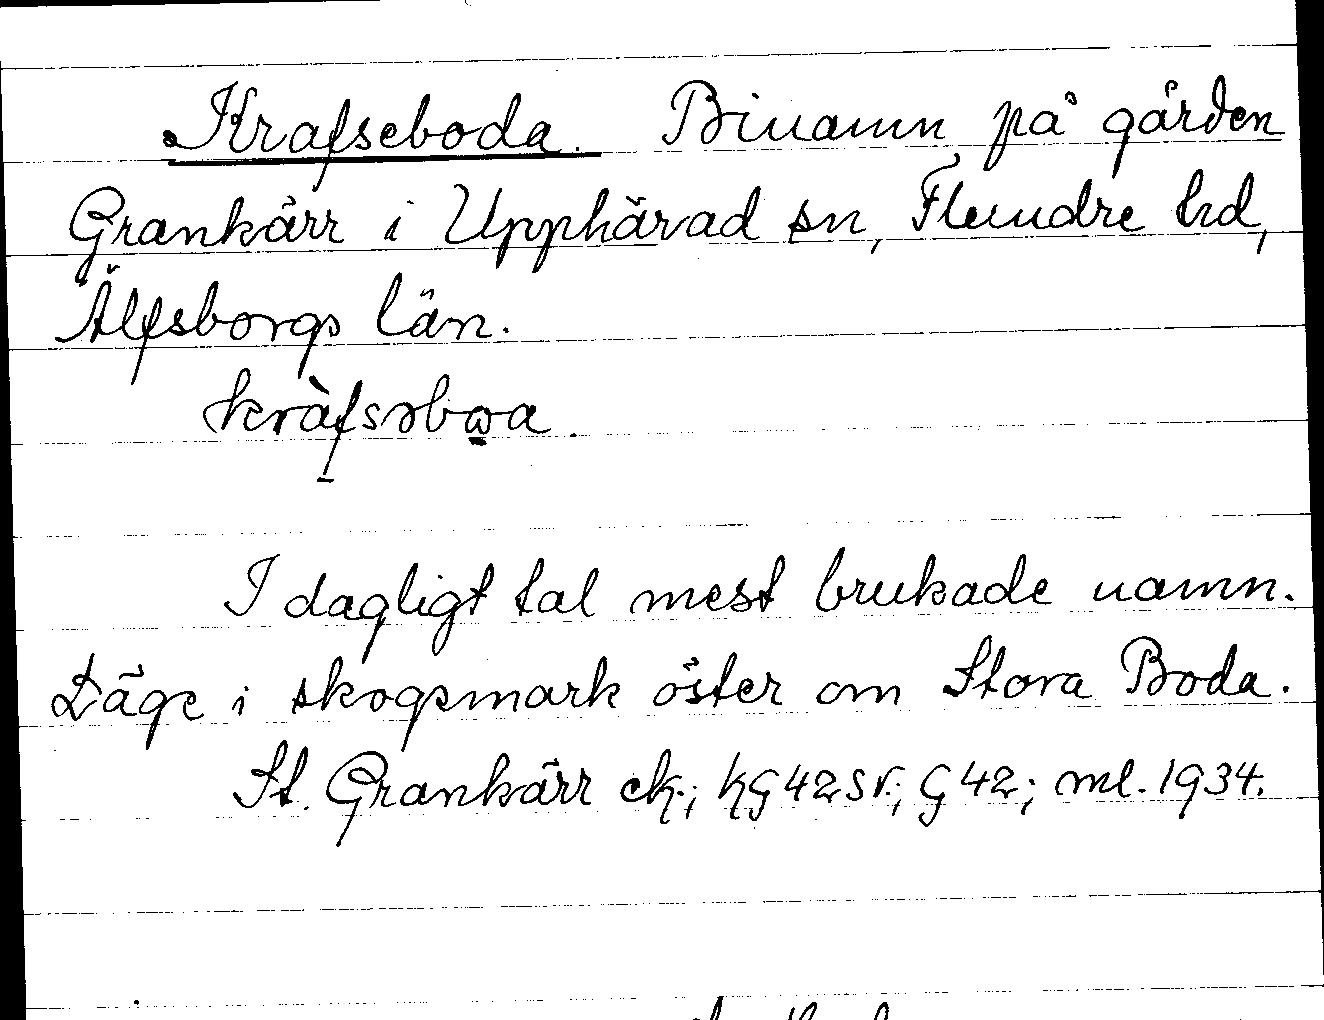 Krafseboda. Binamn på gården
Grankärr i Upphärad sn, Flundre hd,
Älfsborgs län.
kràfsəbωa.
I dagligt tal mest brukade namn.
Läge i skogsmark öster om Stora Boda.
St. Grankärr ek.; hG42SV.; G42; ml. 1934.